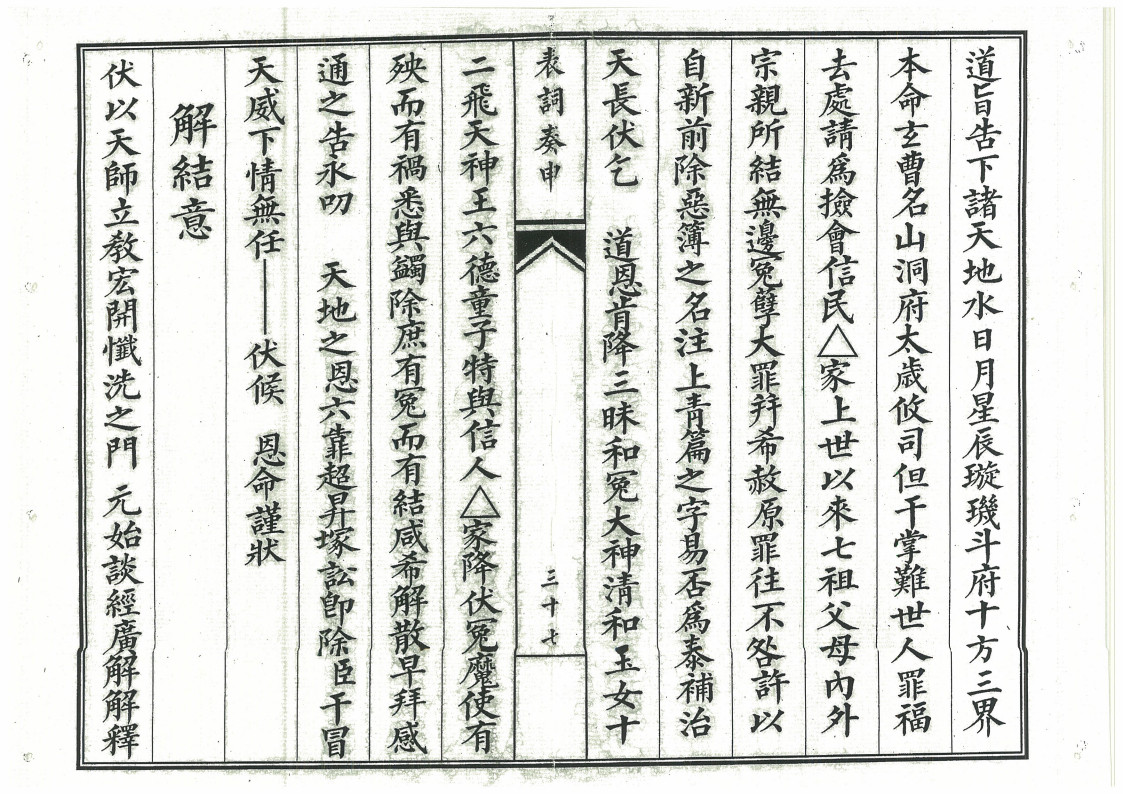 道旨告下諸天地水日月星辰璇璣斗府十方三界
本命玄曹名山洞府太歲攸司但干掌難世人罪福
去處請爲撿會信民△家上世以來七祖父母內外
宗親所結無邊冤孽大罪拜希赦原罪往不咎許以
自新前除惡簿之名注上青篇之字易否爲泰補治
天長伏乞 道恩肯降三昧和冤大神清和玉女十
表詞奏申 三十七
二飛天神王六德童子特與信人△家降伏冤魔使有
殃而有禍悉與蠲除庶有冤而有結咸希解散早拜感
通之告永叨 天地之恩六靠超昇塚訟卽除臣干冒
天威下情無任——伏候 恩命謹狀
解結意
伏以天師立教宏開懺洗之門 元始談經廣解解釋